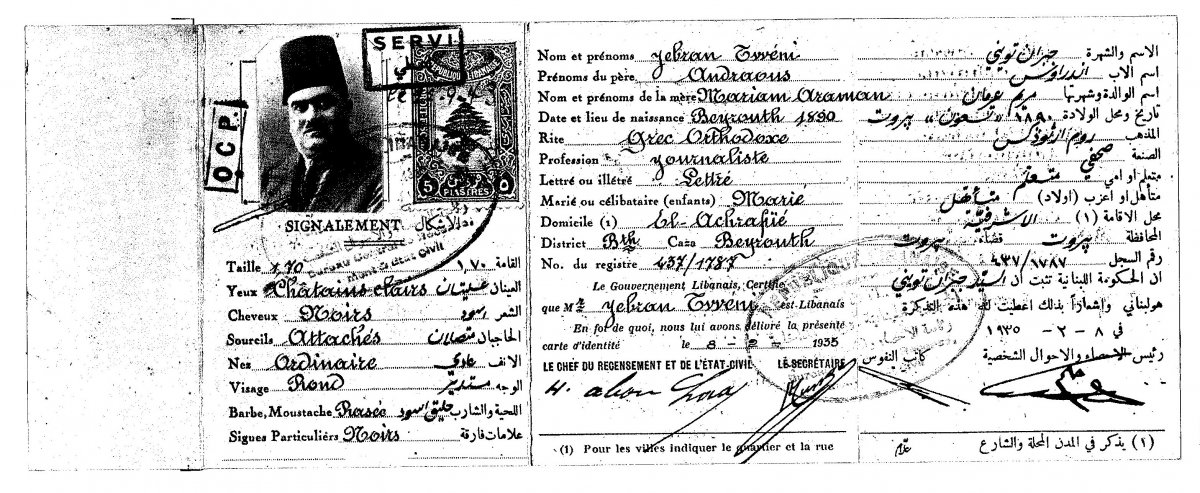 SERVI
O C P.
5
PIASTRES
٥
SIGNALEMENT الاشكال
Taille 1,70 ١,٧٠ القامة
Yeux Châtains clairs عسليتان العينان
Cheveux Noirs اسود الشعر
Sourcils Attachés متصلان الحاجبان
Nez Ordinaire عادي الانف
Visage Rond مستدير الوجه
Barbe, Moustache Rasée حليق اسود اللحية والشارب
Sigues Particuliérs Noirs علامات فارقة
Nom et prénoms Jebran Twéni جبران تويني الاسم والشهرة
Prénoms du père Andraous اندراوس اسم الاب
Nom et prénoms de la mère Mariam Araman مريم عرمان اسم الوالدة وشهرتها
Date et lieu de naissance Beyrouth 1890 ١٨٩٠ بيروت تاريخ ومحل الولادة
Rite Grec Orthodoxe روم ارثوذكس المذهب
Profession Journaliste صحفي الصنعة
Lettré ou illétré Lettré متعلم متعلم او امي
Marié ou célibataire (enfants) Marié متأهل متأهل او اعزب (اولاد)
Domicile (1) El-Achrafié الاشرفية محل الاقامة (١)
District Bth Caza Beyrouth بيروت قضاء بيروت المحافظة
No. du registre 437/1787 ٤٣٧/١٧٨٧ رقم السجل
Le Gouvernement Libanais, Certifie ان الحكومة اللبنانية تثبت ان السيد جبران تويني
que Mr Jebran Twéni est Libanais هو لبناني وإشعاراً بذلك اعطيت له هذه التذكرة
En foi de quoi, nous lui avons délivré la présente
carte d'identité le 8 - 2 - 1935 في ٨ - ٢ - ١٩٣٥
LE CHEF DU RECENSEMENT ET DE L'ÉTAT-CIVIL LE SECRÉTAIRE كاتب النفوس رئيس الاحصاء والاحوال الشخصية
(1) Pour les villes indiquer le quartier et la rue (١) يذكر في المدن المحلة والشارع